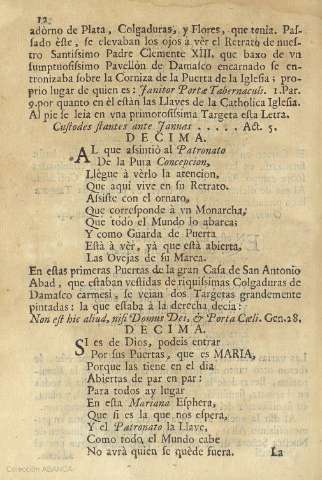 12.
adorno de Plata, Colgaduras, y Flores, que tenia. Pas-
sado èste, se elevaban los ojos a vèr el Retrato de nues-
tro Santissimo Padre Clemente XIII, que baxo de vn
sumptuosissimo Pavellòn de Damasco encarnado se en-
tronizaba sobre la Corniza de la Puerta de la Iglesia; pro-
prio lugar de quien es: Janitor Portæ Tabernaculi. 1. Par.
9. por quanto en èl estàn las Llaves de la Catholica Iglesia.
Al pie se leia en vna primorosissima Targeta esta Letra.
Custodes stantes ante Januas ..... Act. 5.
DECIMA.
AL que assintiò al Patronato
De la Pura Concepcion,
Llègue à vèrlo la atencion,
Que aqui vive en su Retrato.
Assiste con el ornato,
Que corresponde à vn Monarcha,
Que todo el Mundo lo abarca:
Y como Guarda de Puerta
Està à vèr, yà que està abierta,
Las Ovejas de su Marca.
En estas primeras Puertas de la gran Casa de San Antonio
Abad, que estaban vestidas de riquissimas Colgaduras de
Damasco carmesi, se veian dos Targetas grandemente
pintadas: la que estaba à la derecha decia:
Non est hic aliud, nisi Domus Dei, & Porta Cæli. Gen. 28.
DECIMA.
SI es de Dios, podeis entrar
Por sus Puertas, que es MARIA,
Porque las tiene en el dia
Abiertas de par en par:
Para todos ay lugar
En esta Mariana Esphera,
Que si es la que nos espera,
Y el Patronato la Llave,
Como todo el Mundo cabe
No avrà quien se quède fuera.
La
Colección ABANCA